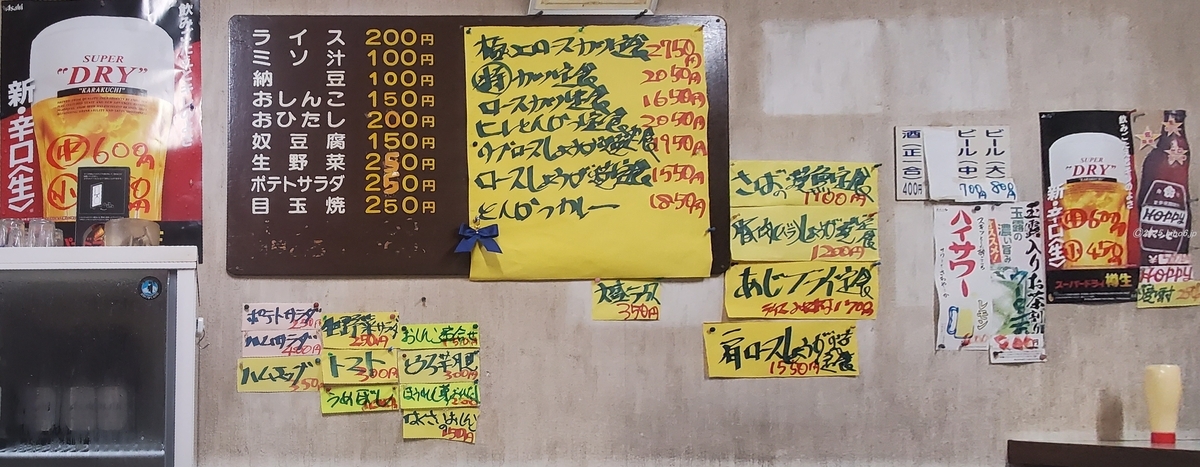 Asahi
飲みごたえ
SUPER
"DRY"
"KARAKUCHI"
新・辛口〈生〉
中 600円
小
ライス 200円
ミソ汁 100円
納豆 100円
おしんこ 150円
おひたし 200円
奴豆腐 150円
生野菜 250円
ポテトサラダ 250円
目玉焼 250円
極上ロースカツ定食 2750円
特カツ定食 2050円
ロースカツ定食 1650円
ヒレとんかつ定食 2050円
1950円
ロースしょうが焼定食 1550円
とんかつカレー 1850円
大盛ライス
350円
さばの塩焼定食
1100円
豚肉しょうが焼定食
1200円
あじフライ定食
肩ロースしょうが焼定食
1550円
ポテトサラダ
250円
ハムサラダ
400円
ハムエッグ
350
生野菜サラダ
250円
トマト
300円
うめぼし
おしんこ盛合せ
300円
はくさいおしんこ
250円
ビール(大) 800
ビール(中) 700円
酒(正一合) 400円
ハイサワー
レモン
玉露入りお茶割り
玉露の濃い旨み
SUPER
"DRY"
新・辛口〈生〉
中 600円
小 450
スーパードライ 樽生
HOPPY
HOPPY